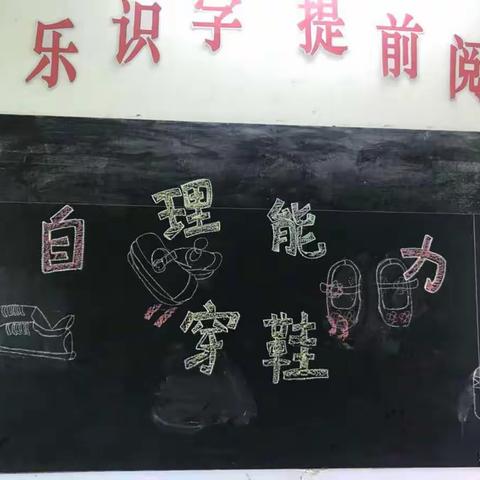 乐识字提前阅
自理能力
穿鞋